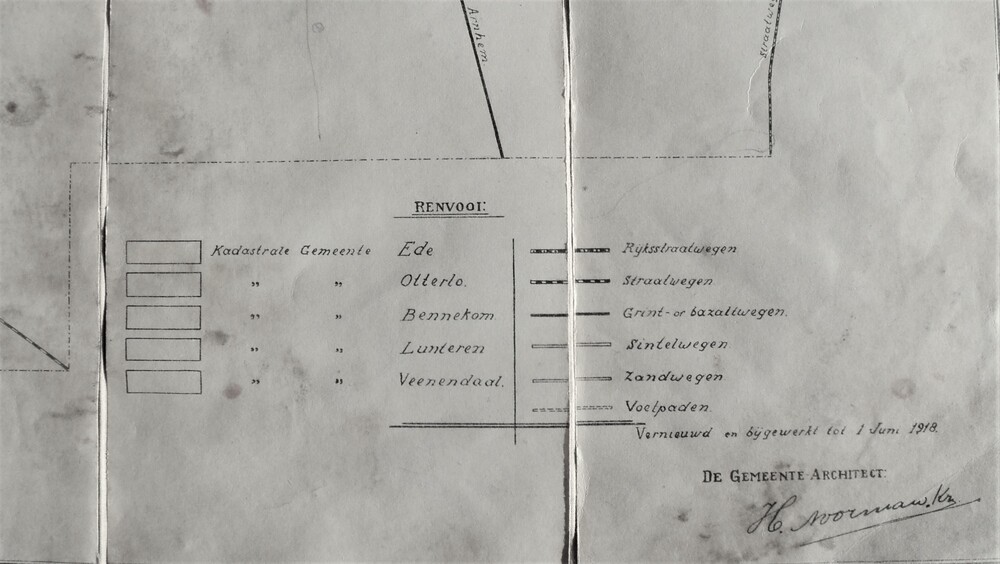 Arnhem
Straatweg
RENVOOI:
Kadastrale Gemeente Ede
„ „ Otterlo.
„ „ Bennekom
„ „ Lunteren
„ „ Veenendaal.
Rijksstraatwegen
Straatwegen
Grint- or bazaltwegen.
Sintelwegen
Zandwegen
Voetpaden.
Vernieuwd en bijgewerkt tot 1 Juni 1918.
DE GEMEENTE-ARCHITECT: